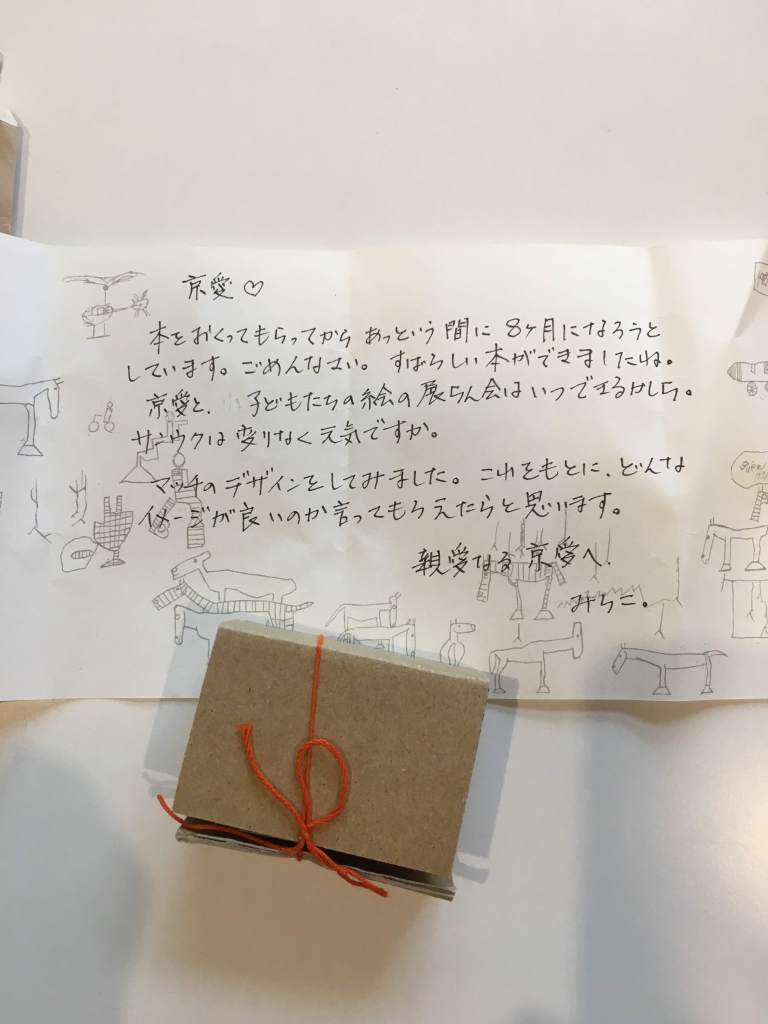 京愛♡
本をおくってもらってから あっという間に 8ヶ月になろうと
しています。ごめんなさい。すばらしい本ができましたね。
京愛と、子どもたちの絵の展らん会はいつできるかしら。
サニウクは変りなく元気ですか。
マッチのデザインをしてみました。これをもとに、どんな
イメージが良いのか言ってもらえたらと思います。
親愛なる 京愛へ.
みちこ。